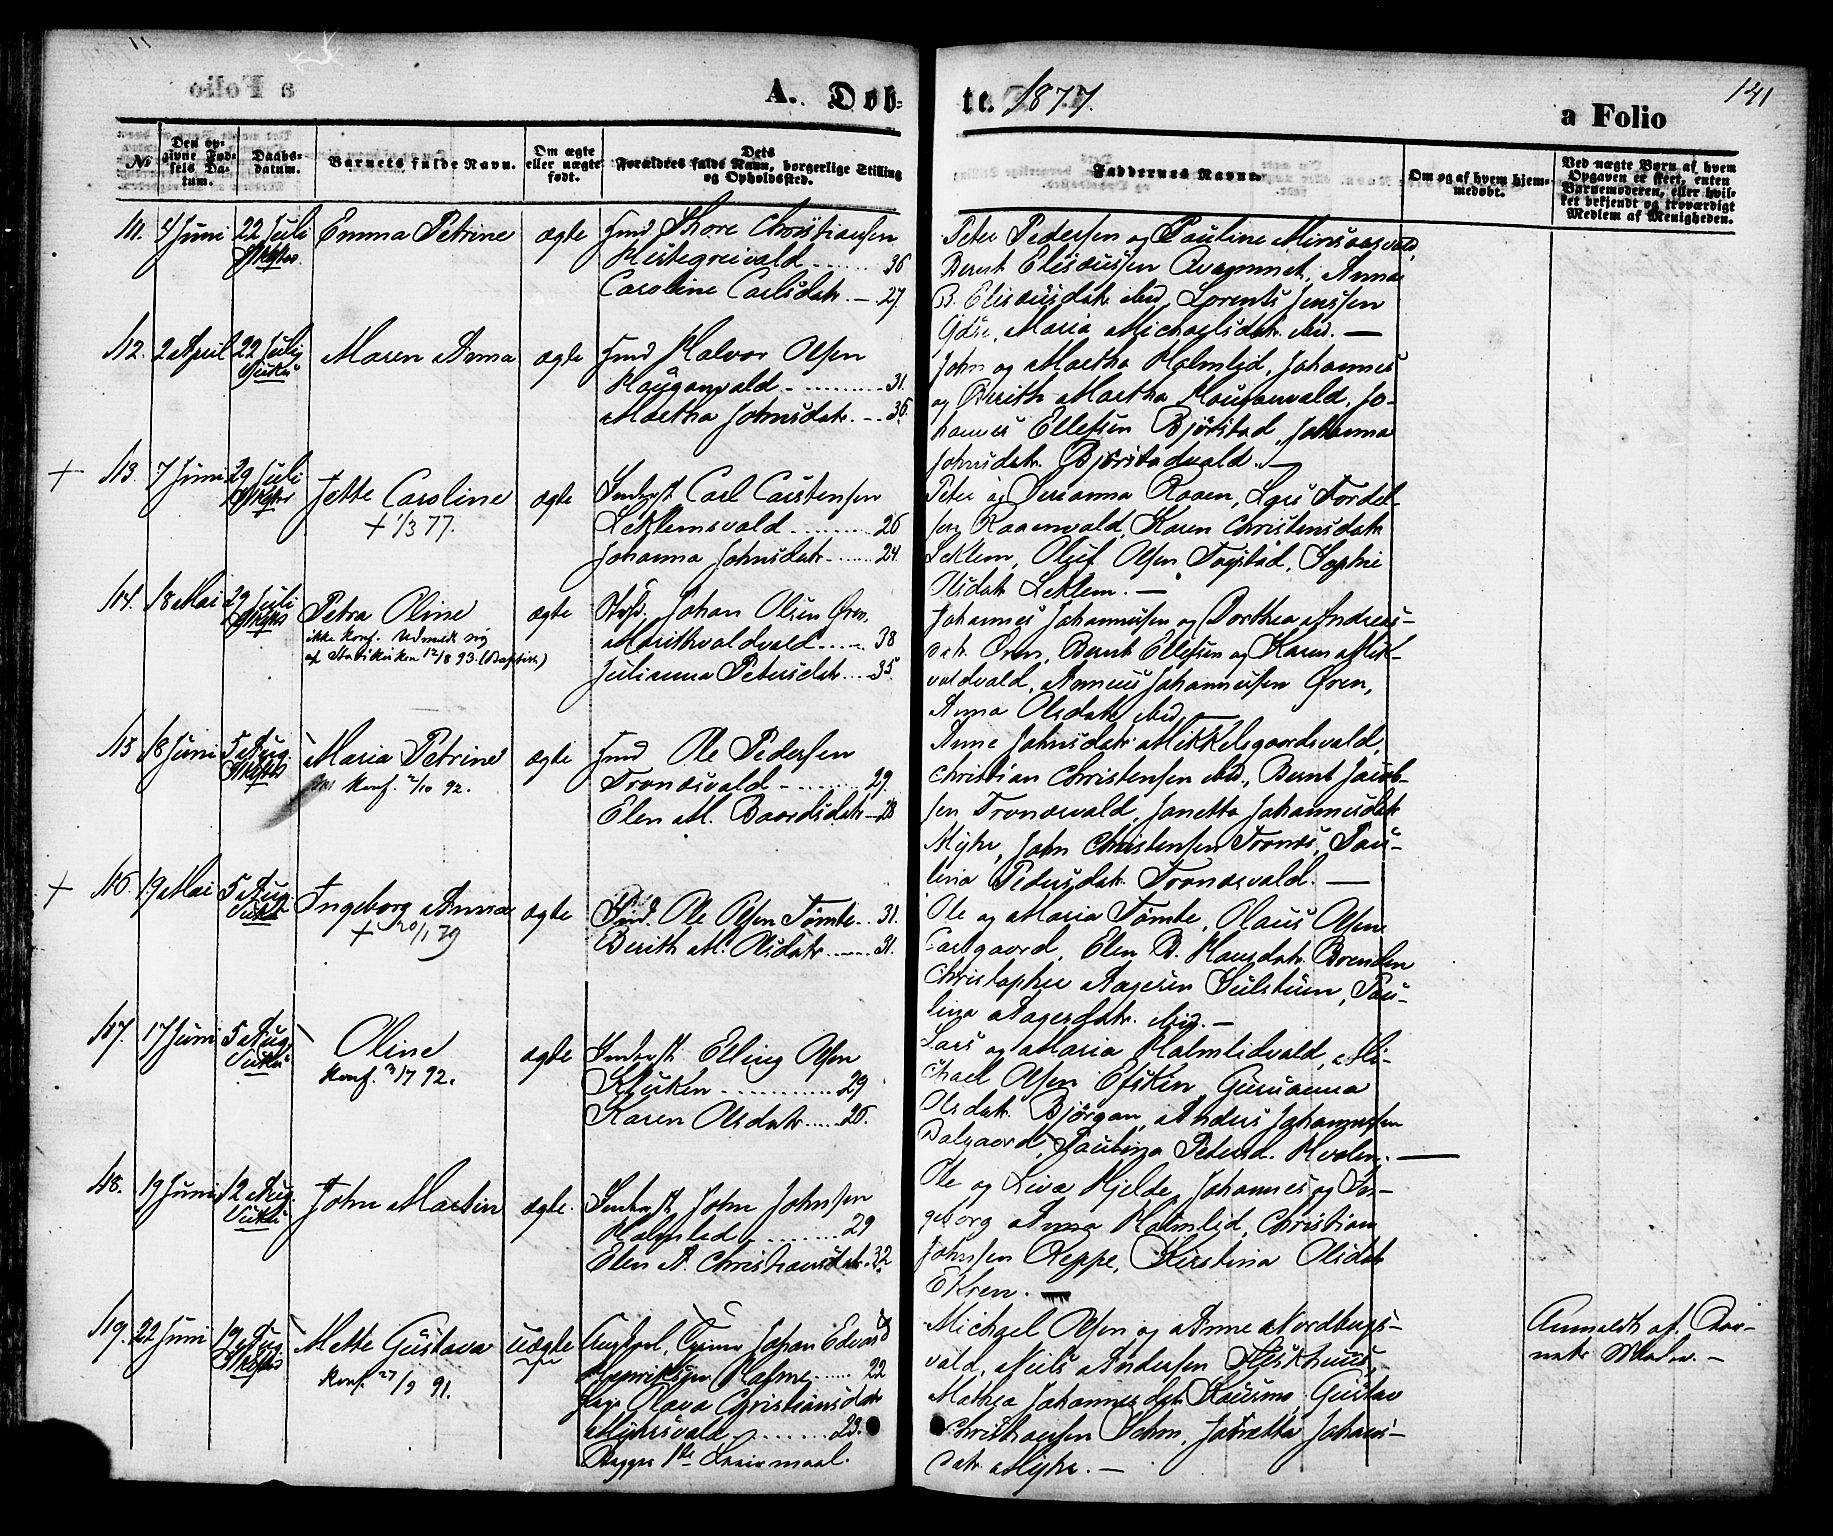 A. Døb-
te. 1877.
141
a Folio
No
Den op-
givne Fød-
sels Da-
tum.
Daabs-
datum.
Barnets fulde Navn.
Om ægte
eller uægte
født.
Dets
Forældres fulde Navn, borgerlige Stilling
og Opholdssted.
Faddernes Navne.
Om og af hvem hjem-
medøbt.
Ved uægte Børn af hvem
Opgaven er skeet, enten
Barnemoderen, eller hvil-
ket bekjendt og troværdigt
Medlem af Menigheden.
111. Juni 22 Juli Emma Petrine ægte Huusmd Thore Christiansen
36
Caroline Carlsdatr. — 27.
Peter Pedersen og Pauline Minsaasvald,
Bernt Elisæussen Qvammet, Anna
B. Elisæusdatr. ibid, Lorents Jenssen
Maria Michaelsdatr. ibid. —
112. 2 April 22 Juli Maren Anna ægte Halvor Olsen
Vuku
Hauganvald 31.
Martha Johnsdatr. 36.
John og Martha Holmlid, Johannes
og Berith Martha Hauganvald, Jo-
hannes Ellefsen Bjørstad, Johanna
Johnsdatr. Bjørstadvald. —
+ 113. 7 Juni 29 Juli Jette Caroline ægte Inderst Carl Carstensen
+ 1/3 77.
Leklemsvald 26
Johanna Johnsdatr. 24
Peter og Serianna Raaen, Lars Tordel-
sen Raaenvald, Karen Christensdatr.
Leklem, Oluf Olsen Sophie
Olsdatr. Leklem. —
114. 18 Mai 29 Juli Petra Oline ægte Johan Olsen Øren
ikke konf. Udmeldt sig
af Statskirken 12/8 93. (Baptist.)
38
Julianna Petersdatr. 35.
Johannes Johannessen og Dorthea Andreas-
datr. Øren, Bernt Ellefsen og Karen Mik-
valdvald, Anneus Johannessen Øren,
Anna Olsdatr. ibid.
115 18 Juni 5 Aug. Maria Petrine ægte Ole Pedersen
Konf. 2/10 92.
Tronæsvald 29.
Elen M. Baardsdatr. 28
Anne Johnsdatr. Mikkelsgaardsvald,
Christian Christensen ibid., Bernt Jacob-
sen Tronæsvald, Janetta Johannesdatr.
Myhr, John Christensen Tronæs, Pau-
lina Pedersdatr. Tronæsvald. —
+ 116. 19 Mai 5 Aug. Ingeborg Anna ægte Ole Olsen Tømte 31.
Vuku
+ 20/1 79
Berith M. Olsdatr. 31.
Ole og Maria Tømte, Olaus Olsen
Carlgaard, Elen B. Hansdatr. Brenden
Christopher Aagesen Sulstuen, Pau-
lina Aagesdatr. ibid. —
117. 17 Juni 5 Aug. Oline ægte Inderst Elling Olsen
Vuku
Konf. 3/7 92.
Kluken 29
Karen Olsdatr. 26.
Lars og Maria Holmlidvald, Mi-
chael Olsen Guruanna
Olsdatr. Bjørgan, Anders Johannessen
Dalgaard, Paulina Petersd. Kvelen. —
118. 19 Juni 12 Aug. John Martin ægte. Inderst John Johnsen
Vuku
Holmlid 29
Elen A. Christiansdatr. 32
Ole og Liva Hjelde, Johannes og In-
geborg Anna Holmlid, Christian
Johnsen Reppe, Kirstina Olsdatr.
Ekren. —
119. 22 Juni 19 Aug. Mette Gustava uægte Ungkarl, Johan Edvard
Konf. 27/9 91.
Henriksen Holme 22
Pige Olava Christiansdatr.
Myhrsvald 23.
Begges 1ste Leiermaal.
Michael Olsen og Anne Nordbergs-
vald, Niels Andersen
Mathea Johannesdatr. Gustav
Christiansen Johans-
datr. Myhr. —
Anmeldt af Bar-
nets Moder. —